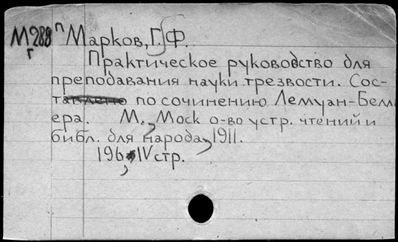 М288 п Марков, Г. Ф.
г
Практическое руководство для
преподавания науки трезвости. Сос-
тавлено по сочинению Лемуан-Белль
ера. М., Моск о-во устр. чтений и
библ. для народа, 1911.
196, IV стр.